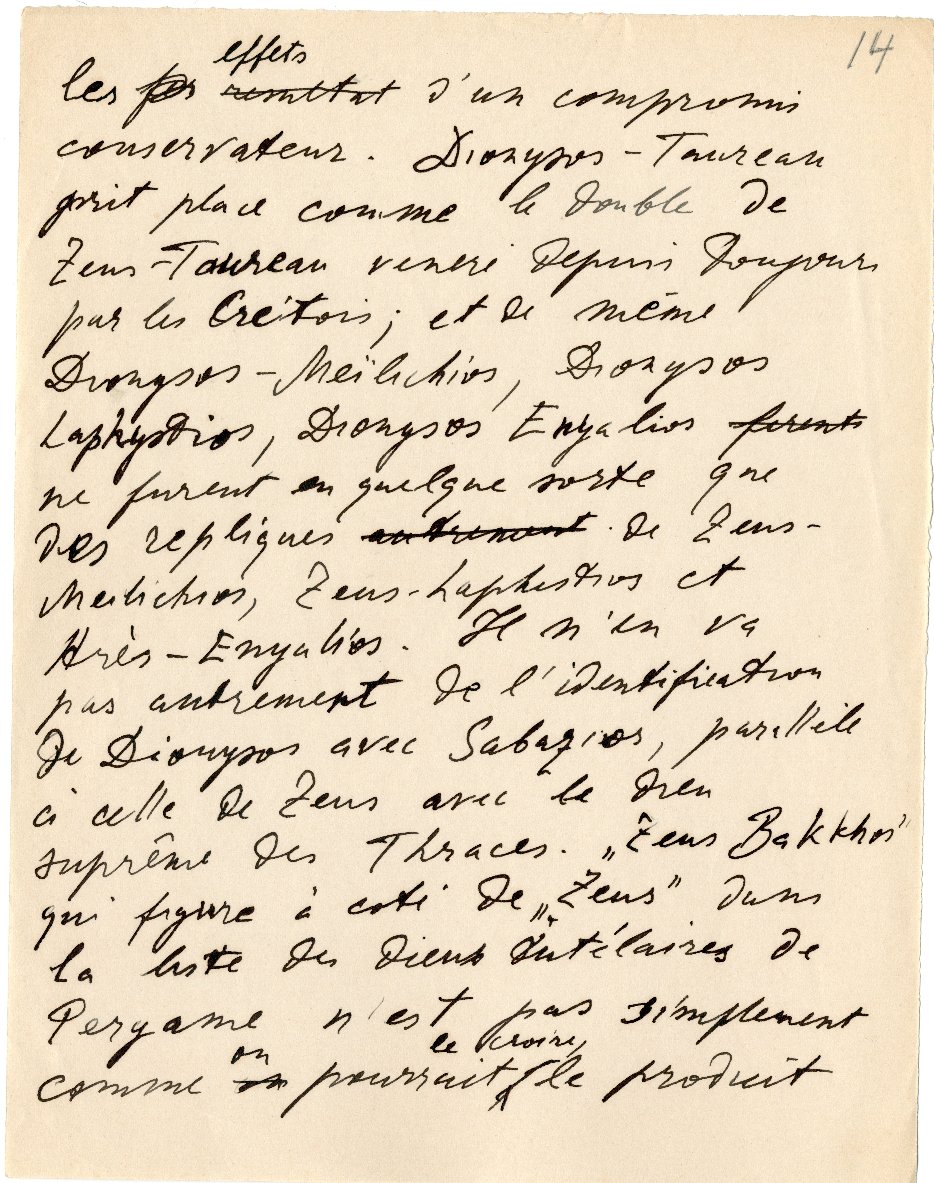 14
effets
les résultat d'un compromis
conservateur. Dionysos-Taureau
prit place comme le double de
Zeus-Taureau venere depuis toujours
par les Crétois; et de même
Dionysos-Meïlichios, Dionysos
Laphystios, Dionysos Enyalios furent
ne furent en quelque sorte que
des repliques autrement de Zeus-
Meilichios, Zeus-Laphistios et
Arès-Enyalios. Il n'en va
pas autrement de l'identification
de Dionysos avec Sabazios, parallèle
à celle de Zeus avec le dieu
suprême des Thraces. „Zeus Bakkhos"
qui figure à coté de „Zeus" dans
la liste des dieux tutélaires de
Pergame n'est pas simplement
on le croire,
comme on pourrait le produit